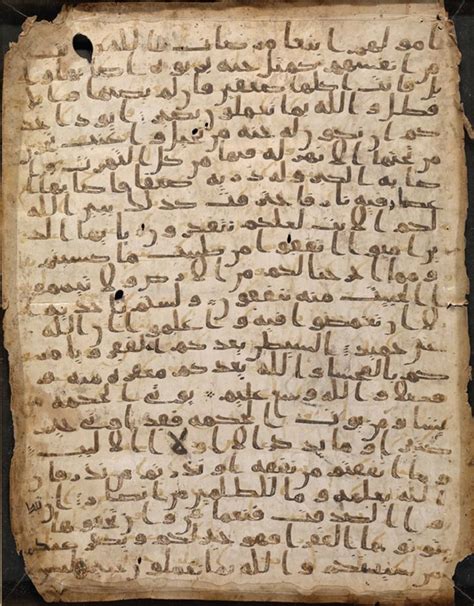 امولهم ابتغا مرضات الله و
من انفسهم كمثل جنة بربوة اصابها وا
بل فاتت اكلها ضعفين فان لم يصبها وابل
فطل والله بما تعملون بصير ايود احد
كم ان تكون له جنة من نخيل واعنب
من تحتها الانهر له فيها من كل الثمرت و
صابه الكبر وله ذرية ضعفا فاصابها
عصار فيه نار فاحترقت كذلك يبين الله
لكم الايت لعلكم تتفكرون يايها الذ
ين امنوا انفقوا من طيبت ما كسبتم
ومما اخرجنا لكم من الارض ولا تيمموا
الخبيث منه تنفقون ولستم باخذيه
الا ان تغمضوا فيه واعلموا ان الله
غني حميد الشيطن يعدكم الفقر ويامر
كم بالفحشا والله يعدكم مغفرة منه و
فضلا والله وسع عليم يوتي الحكمة من
يشا ومن يوت الحكمة فقد اوتي خير
وما يذكر الا اولوا الالبب
وما انفقتم من نفقة او نذرتم من نذر فان
الله يعلمه وما للظلمين من انصار
وا الصدقت فنعما هي وان تخفوها و
توتوها الفقرا فهو خير لكم ويكفر عنكم
من سيتكم والله بما تعملون خبير